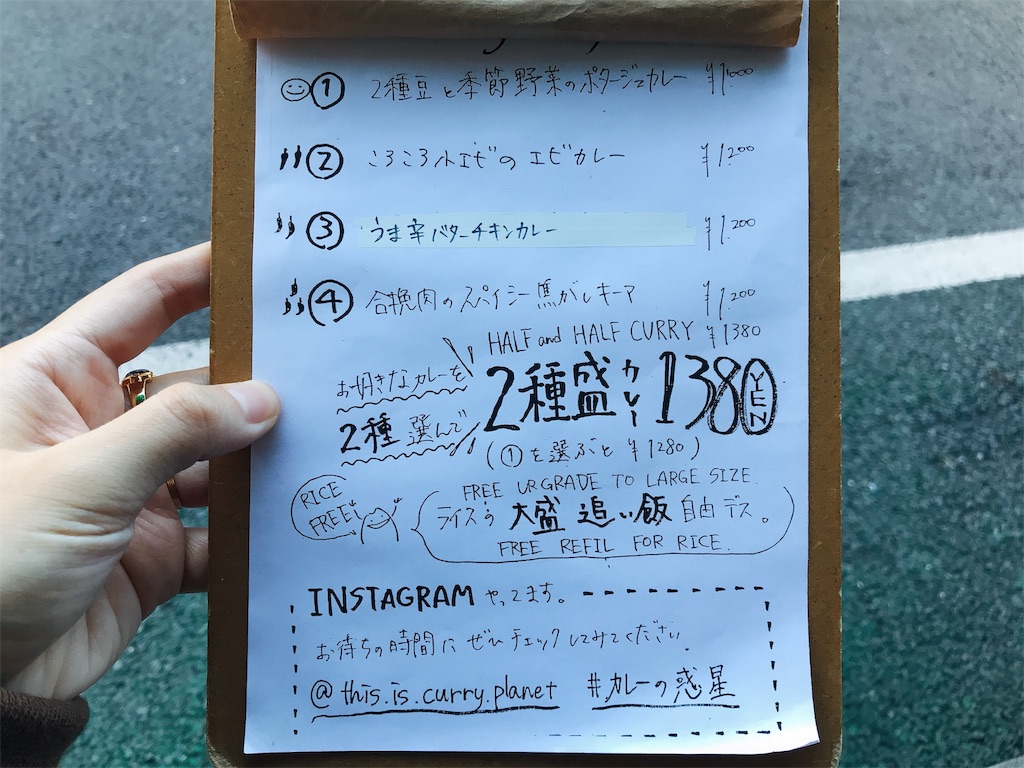 ① 2種豆と季節野菜のポタージュカレー ¥1000
② ころころ小エビのエビカレー ¥1200
③ うま辛バターチキンカレー ¥1.200
④ 合挽肉のスパイシー焦がしキーマ ¥1,200
HALF and HALF CURRY ¥1380
お好きなカレーを
2種選んで
2種盛カレー 1380 YEN
(①を選ぶと ¥1280)
RICE
FREE
FREE URGRADE TO LARGE SIZE.
ライスの大盛 追い飯 自由デス。
FREE REFIL FOR RICE.
INSTAGRAM やってます。
お待ちの時間にぜひチェックしてみてください
@this.is.curry.planet #カレーの惑星